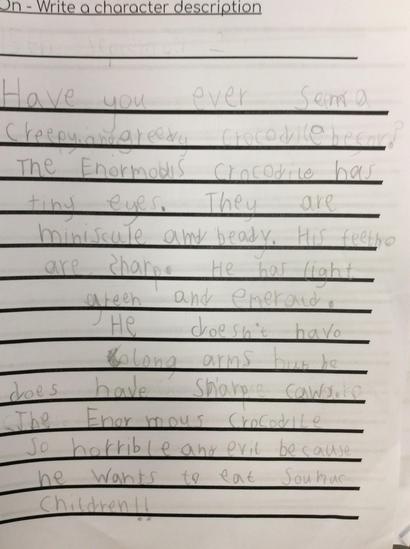 On - Write a character description
Have you ever seina
creepy,and greedy crocodile before?
The Enormous crocodile has
tiny eyes. They are
miniscule and beady. His teeth
are sharp. He has light
green and emerald.
He doesn't have
long arms but he
does have sharp caws.
The Enormous Crocodile
so horrible and evil because
he wants to eat
Children!!